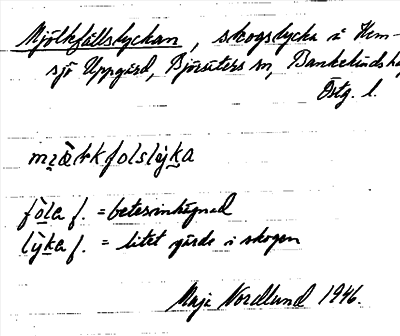 Mjölkfållslyckan, skogslycka i Hem-
sjö Uppgård, Björsäters sn, Bankekinds h
Östg. l.
mi̯ö̀ɫkfolslẏka
fòla f. = betesinhägnad
lẏ̀ka f. = litet gärde i skogen
Maja Nordlund 1946.